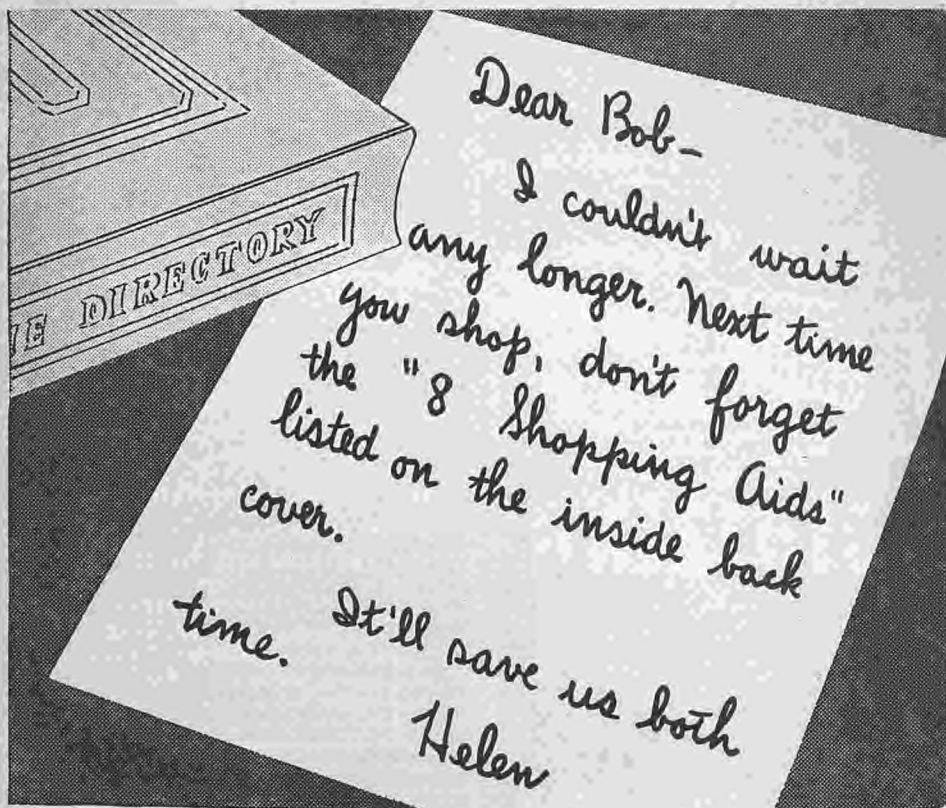 NE DIRECTORY
Dear Bob—
I couldn't wait
any longer. Next time
you shop, don't forget
the "8 Shopping Aids"
listed on the inside back
cover.
It'll save us both
time.
Helen